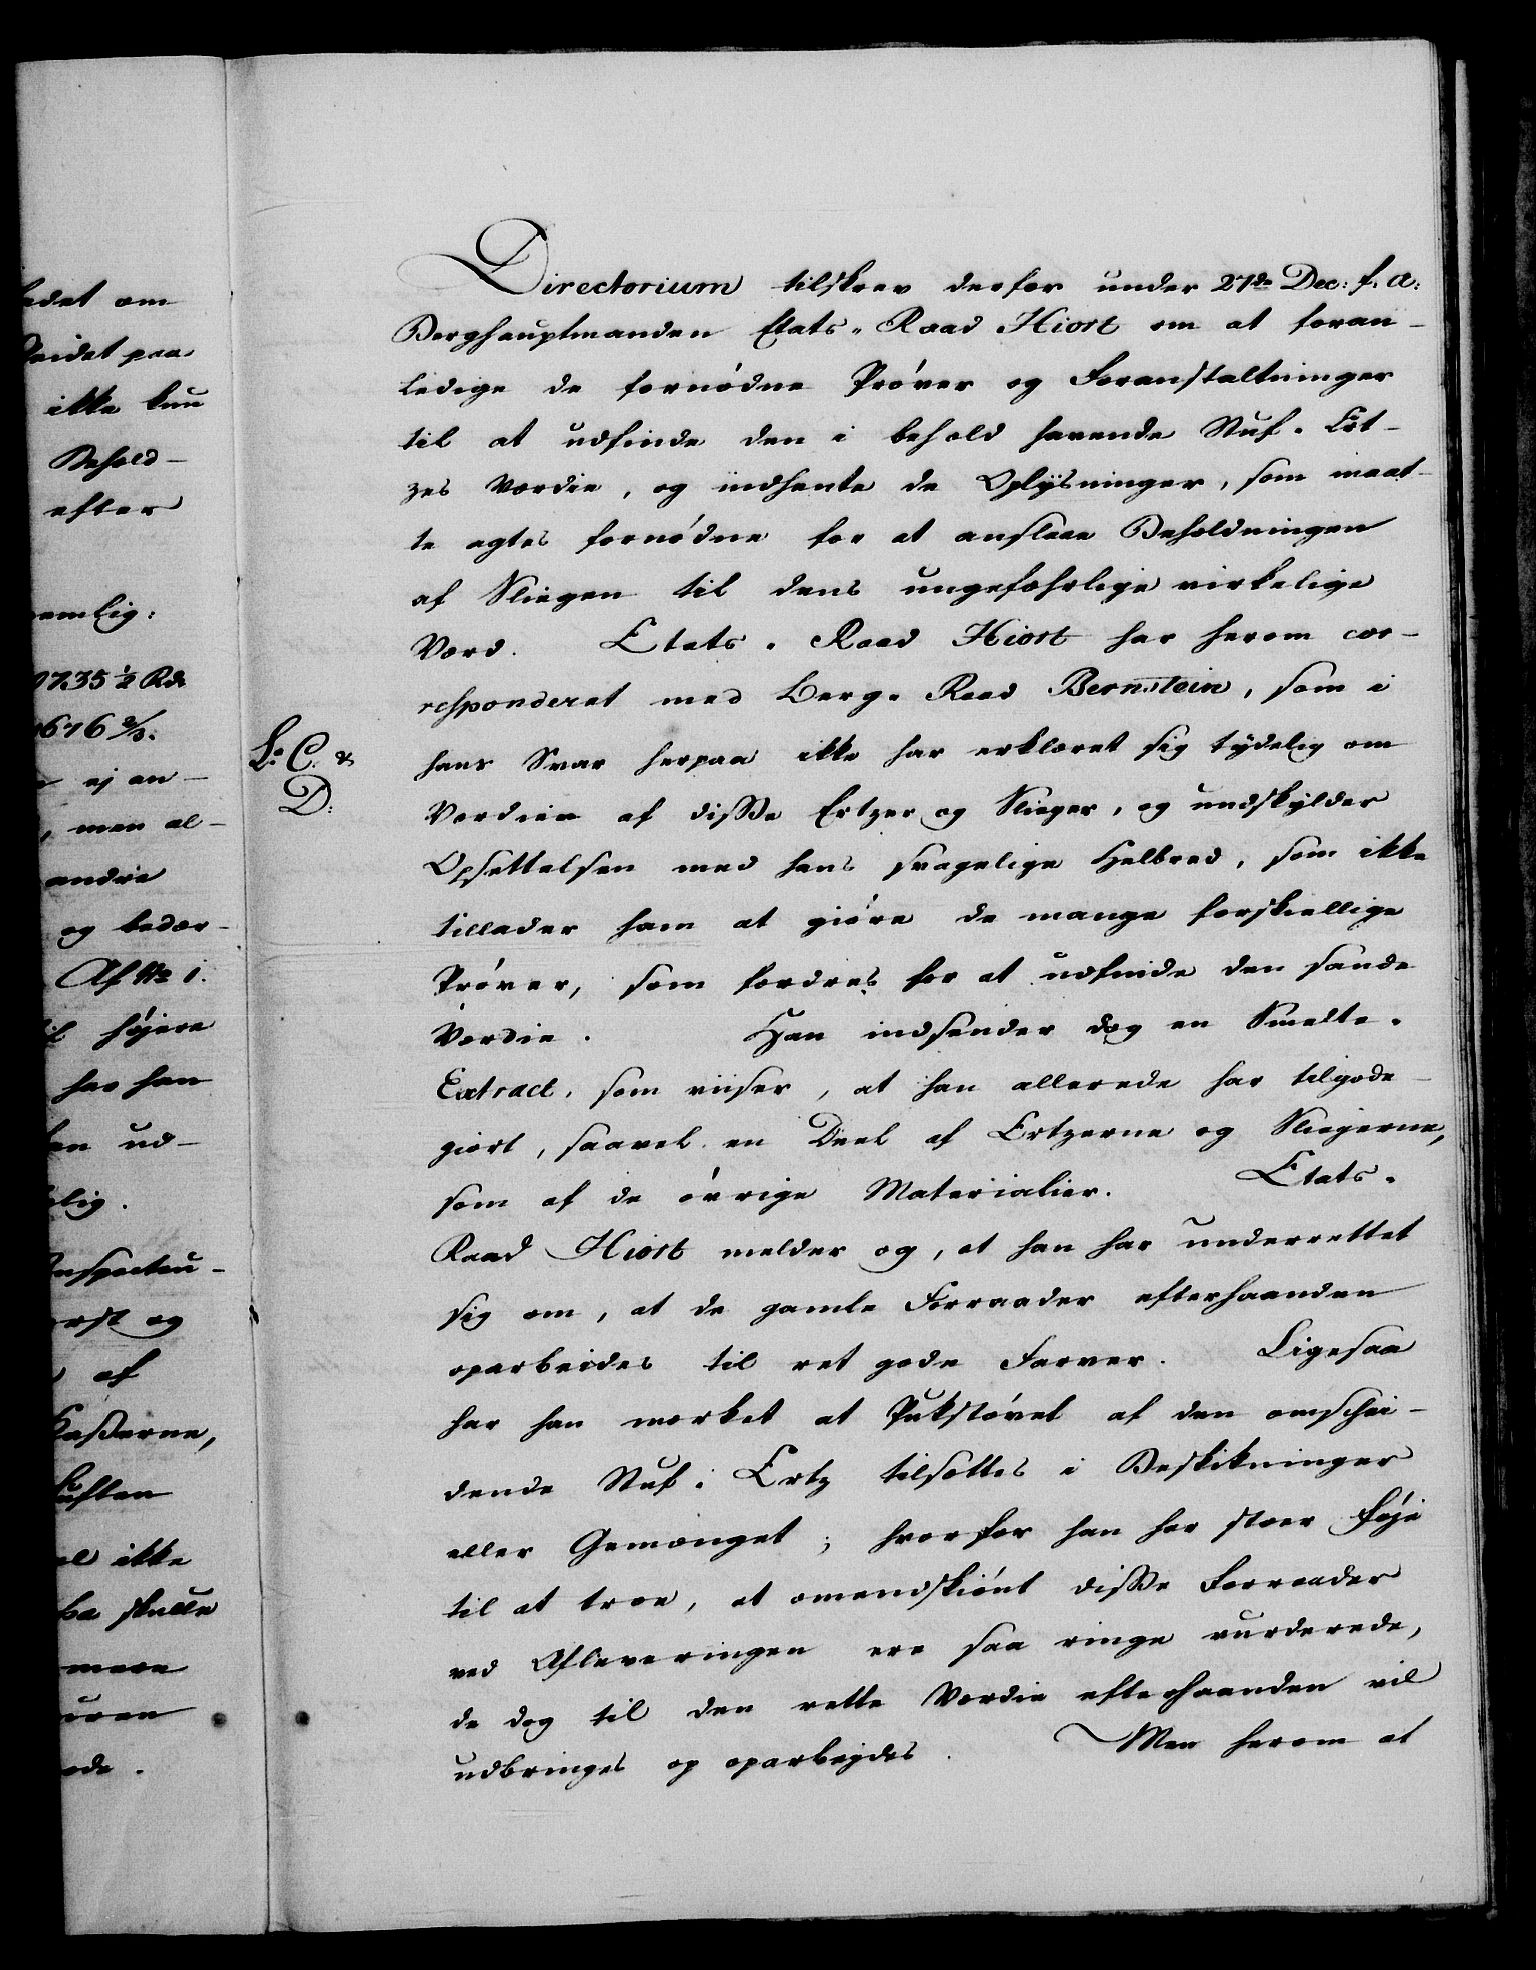 ledet om
beidet paa
ikke kun
Behold-
efter
nemlig:
0735 1/2 Rd
6676 2/3.
ej an-
, men al-
andre
og bedær-
Af No 1.
til højere
har han
ken ud-
elig.
Inspecteu-
ørst og
af
Kasserne,
Luften
vel ikke
ba skulle
mere
uren
ode.
Directorium tilskrev derfor under 27de Dec: f. a:
Berghauptmanden Etats-Raad Hiort om at foran-
ledige de fornødne Prøver og Foranstaltninger
til at udfinde den i behold havende Stuf-Ert-
zes Værdie, og indhente de Oplysninger, som maat-
te agtes fornødne for at anslaae Beholdningen
af Sliegen til dens ungefæhrlige virkelige
Værd. Etats-Raad Hiort har herom cor-
responderet med Berg-Raad Bernstein, som i
Lr C. &
D:
hans Svar herpaa ikke har erklæret sig tydelig om
Værdien af disse Ertzer og Slieger, og undskylder
Opsettelsen med hans svagelige Helbred, som ikke
tillader ham at giøre de mange forskiellige
Prøver, som fordres for at udfinde den sande
Værdie. Han indsender dog en Smelte-
Extract, som viiser, at han allerede har tilgode-
giort, saavel en Deel af Ertzerne og Sliegerne,
som af de øvrige Materialier. Etats-
Raad Hiort melder og, at han har underrettet
sig om, at de gamle Forraader efterhaanden
oparbeides til ret gode Farver. Ligesaa
har han mærket at Pukstøvet af den omschei-
dende Stuf-Ertz tilsættes i Beskikninger
eller Gemænget; hvorfor han har stoer Føje
til at troe, at omendskiønt disse Forraader
ved Afleveringen ere saa ringe vurderede,
de dog til den rette Værdie efterhaanden vil
udbringes og oparbeydes. Men herom at